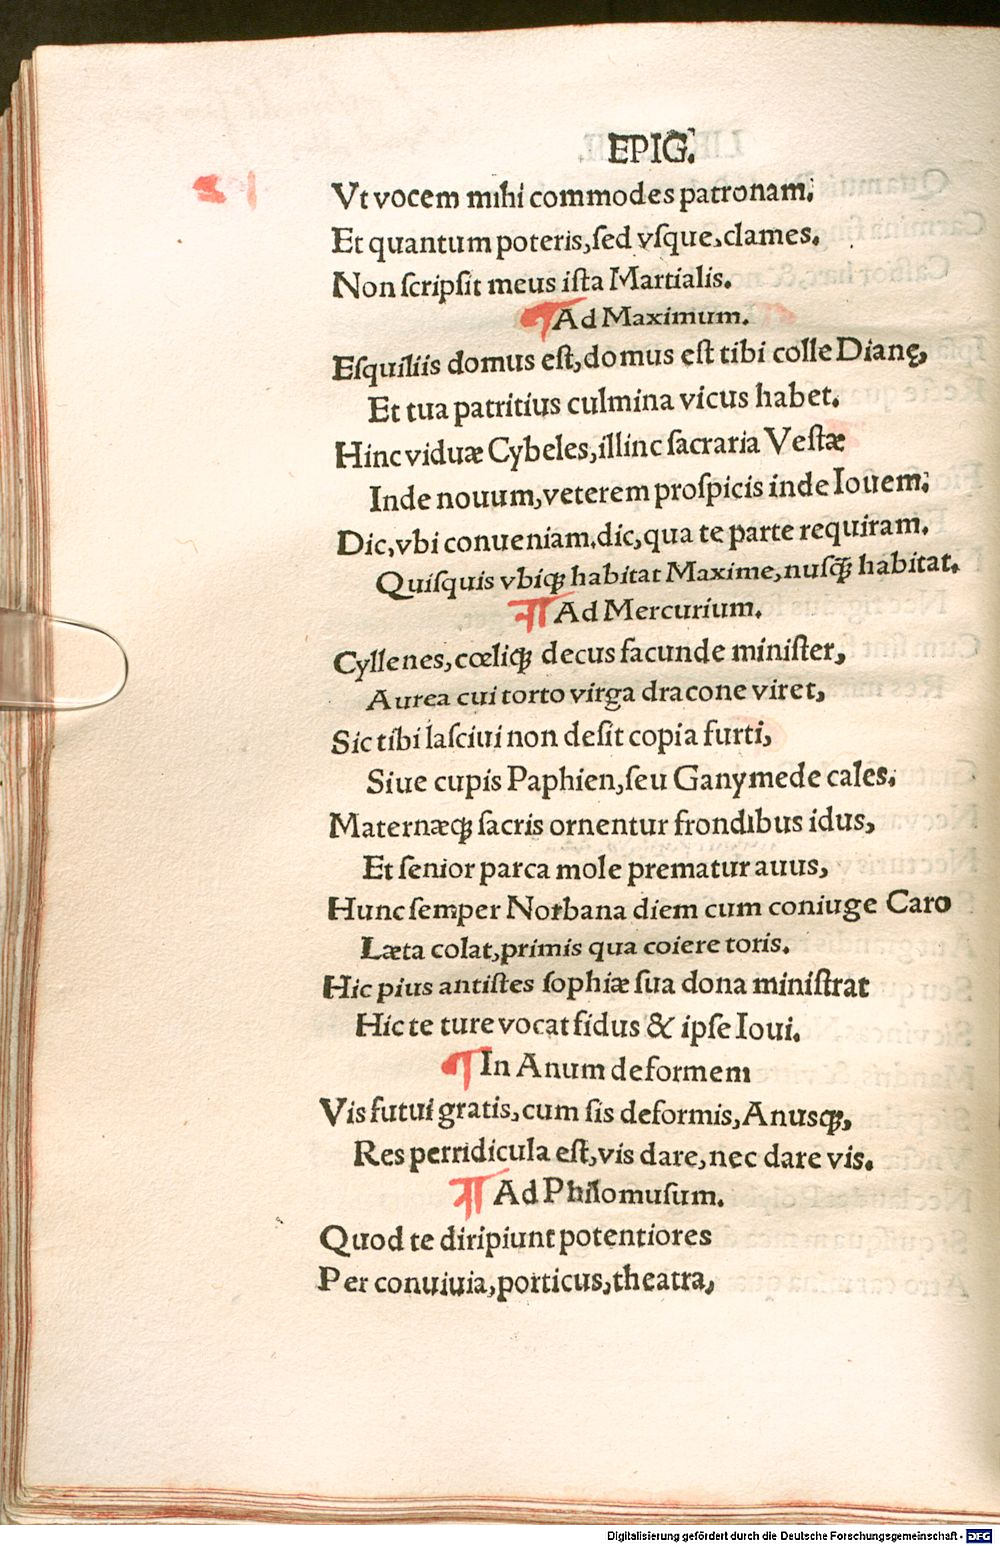 EPIG.
Vt vocem mihi commodes patronam:
Et quantum poteris, ſed vſque, clames.
Non ſcripſit meus iſta Martialis.
¶ Ad Maximum.
Eſquiliis domus eſt, domus eſt tibi colle Dianę,
Et tua patritius culmina vicus habet.
Hinc viduæ Cybeles, illinc ſacraria Veſtæ
Inde nouum, veterem proſpicis inde Iouem:
Dic, vbi conueniam, dic, qua te parte requiram.
Quiſquis vbiqꝫ habitat Maxime, nuſq̃ꝫ habitat.
¶ Ad Mercurium.
Cyllenes, cœliqꝫ decus facunde miniſter,
Aurea cui torto virga dracone viret,
Sic tibi laſciui non deſit copia furti,
Siue cupis Paphien, ſeu Ganymede cales.
Maternæqꝫ ſacris ornentur frondibus idus,
Et ſenior parca mole prematur auus,
Hunc ſemper Norbana diem cum coniuge Caro
Læta colat, primis qua coiere toris.
Hic pius antiſtes ſophiæ ſua dona miniſtrat
Hic te ture vocat fidus & ipſe Ioui.
¶ In Anum deformem
Vis futui gratis, cum ſis deformis, Anusqꝫ,
Res perridicula eſt, vis dare, nec dare vis.
¶ Ad Philomuſum.
Quod te diripiunt potentiores
Per conuiuia, porticus, theatra,
Digitalisierung gefördert durch die Deutsche Forschungsgemeinschaft - DFG